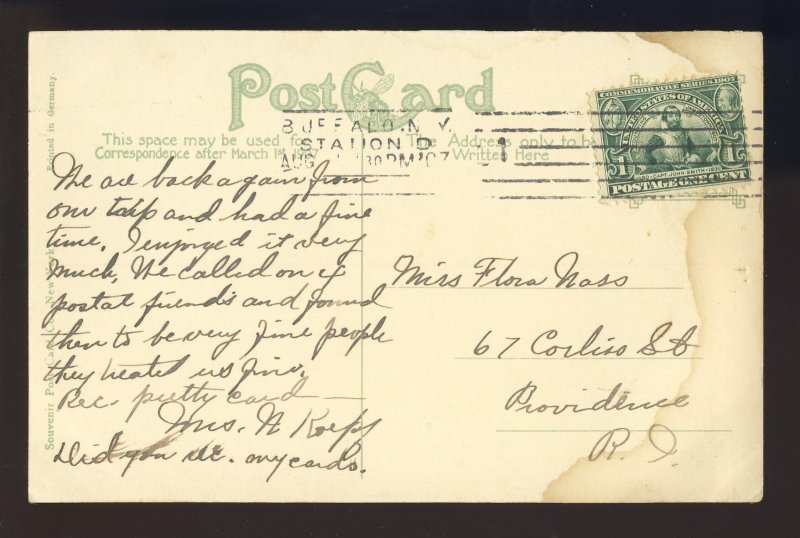 Post Card
This space may be used for
Correspondence after March 1st
The Address only to be
Written Here
BUFFALO. N.Y.
STATION D
AUG 30PM '07
1
COMMEMORATIVE SERIES 1907
UNITED STATES OF AMERICA
1 1
CAPT. JOHN SMITH
POSTAGE ONE CENT
Printed in Germany
Souvenir Post Card Co., New York
We are back again from
our trip and had a fine
time, I enjoyed it very
much, We called on
postal friends and found
them to be very fine people
they treated us fine.
Rec. pretty card —
Mrs. A Koepf
Did you rec. my cards.
Miss Flora Nass
67 Corliss St
Providence
R.I.